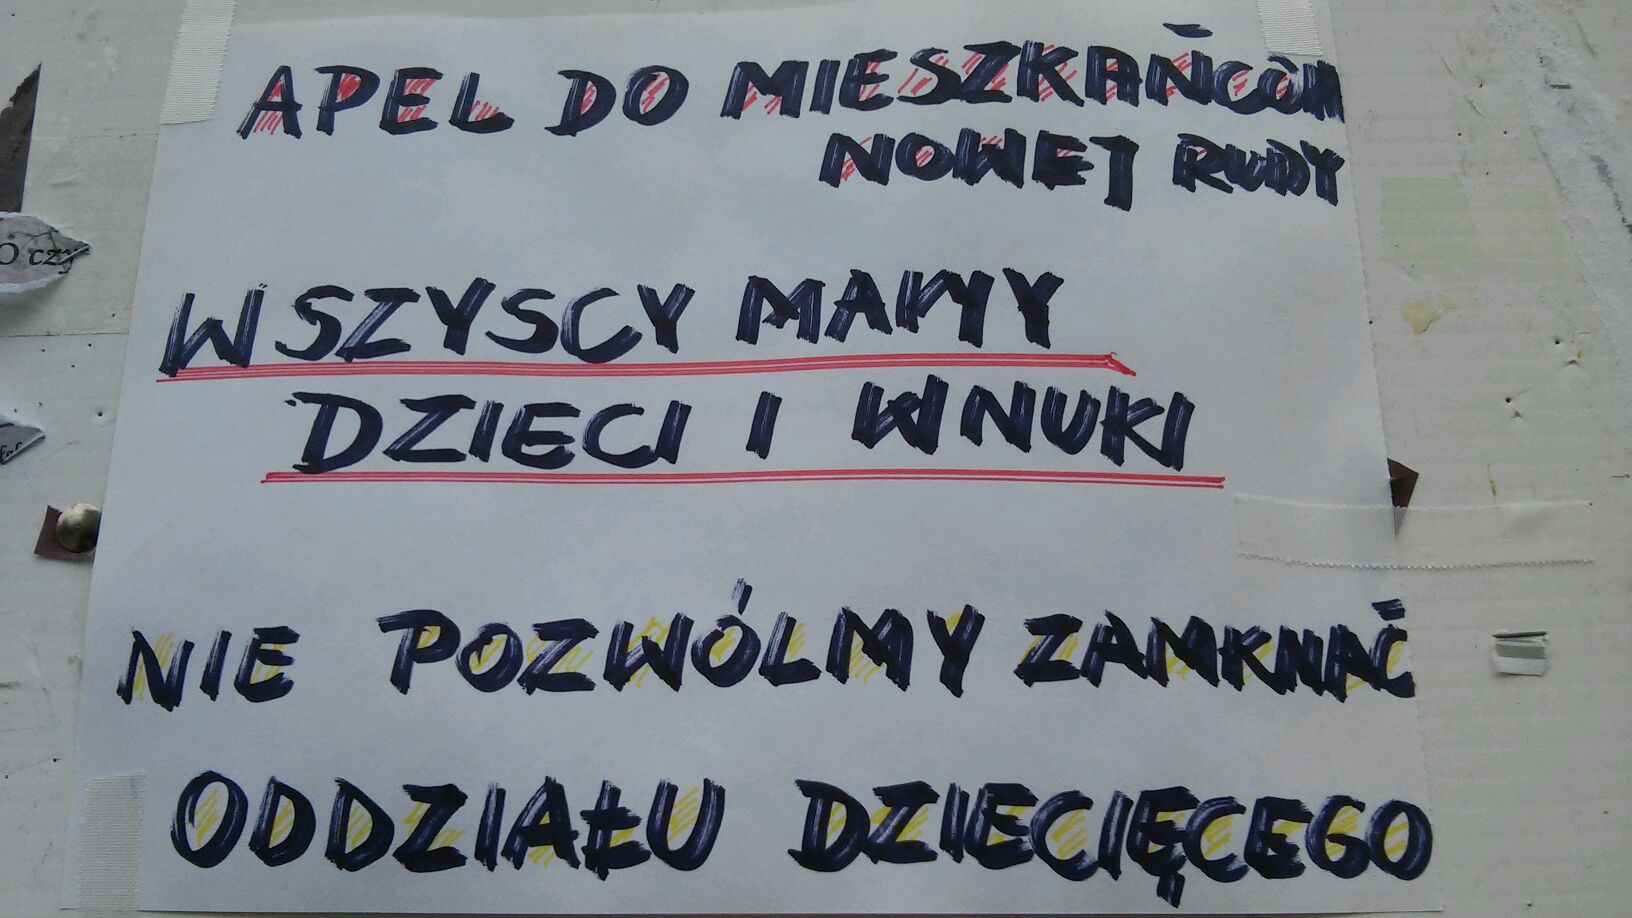 APEL DO MIESZKAŃCÓW
NOWEJ RUDY
WSZYSCY MAMY
DZIECI I WNUKI
NIE POZWÓLMY ZAMKNAĆ
ODDZIAŁU DZIECIĘCEGO
O czy